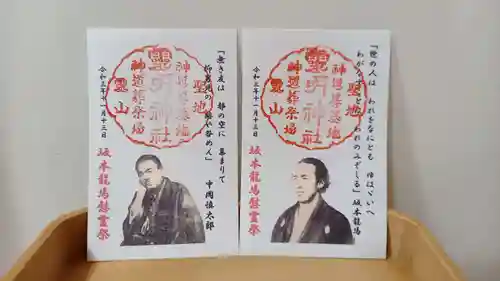 「無き友は 都の空に 集まりて
中岡慎太郎
霊明神社
聖地
神道葬墓地
神道葬祭場
霊山
令和三年十一月十三日
坂本龍馬慰霊祭
「世の人は われをなにとも ゆはゞいへ
わがなすことは われのみぞしる」坂本龍馬
霊明神社
聖地
神道葬墓地
神道葬祭場
霊山
令和三年十一月十三日
坂本龍馬慰霊祭